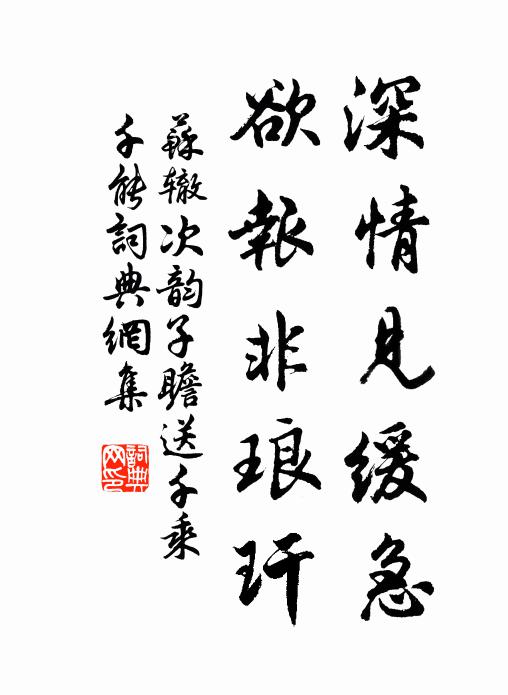 深情見缓急
欲報非琅玕
蘇辙次韵子瞻送千乘
千能詞典網集
詞典
网印